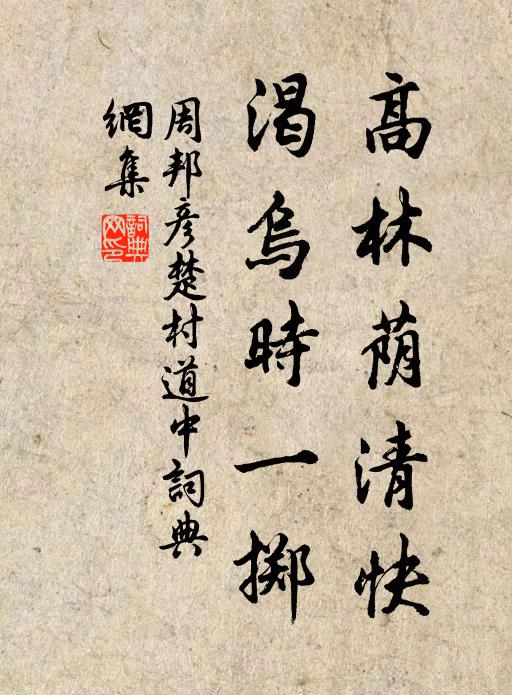 高林荫清快
渴烏時一擲
周邦彦楚村道中詞典
網集
詞典
网印